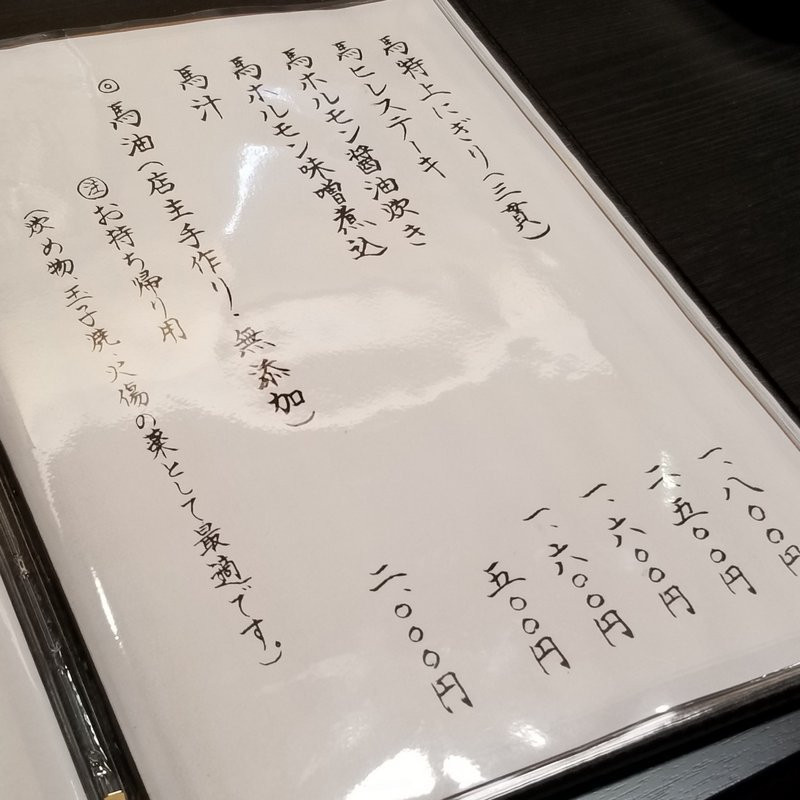 馬特上にぎり(三貫) 一、八〇〇円
馬ヒレステーキ 二、五〇〇円
馬ホルモン醤油炊き 一、六〇〇円
馬ホルモン味噌煮込 一、六〇〇円
馬汁 五〇〇円
◎馬油(店主手作り・無添加) 二、〇〇〇円
㊟お持ち帰り用
(炒め物、玉子焼、火傷の薬として最適です。)